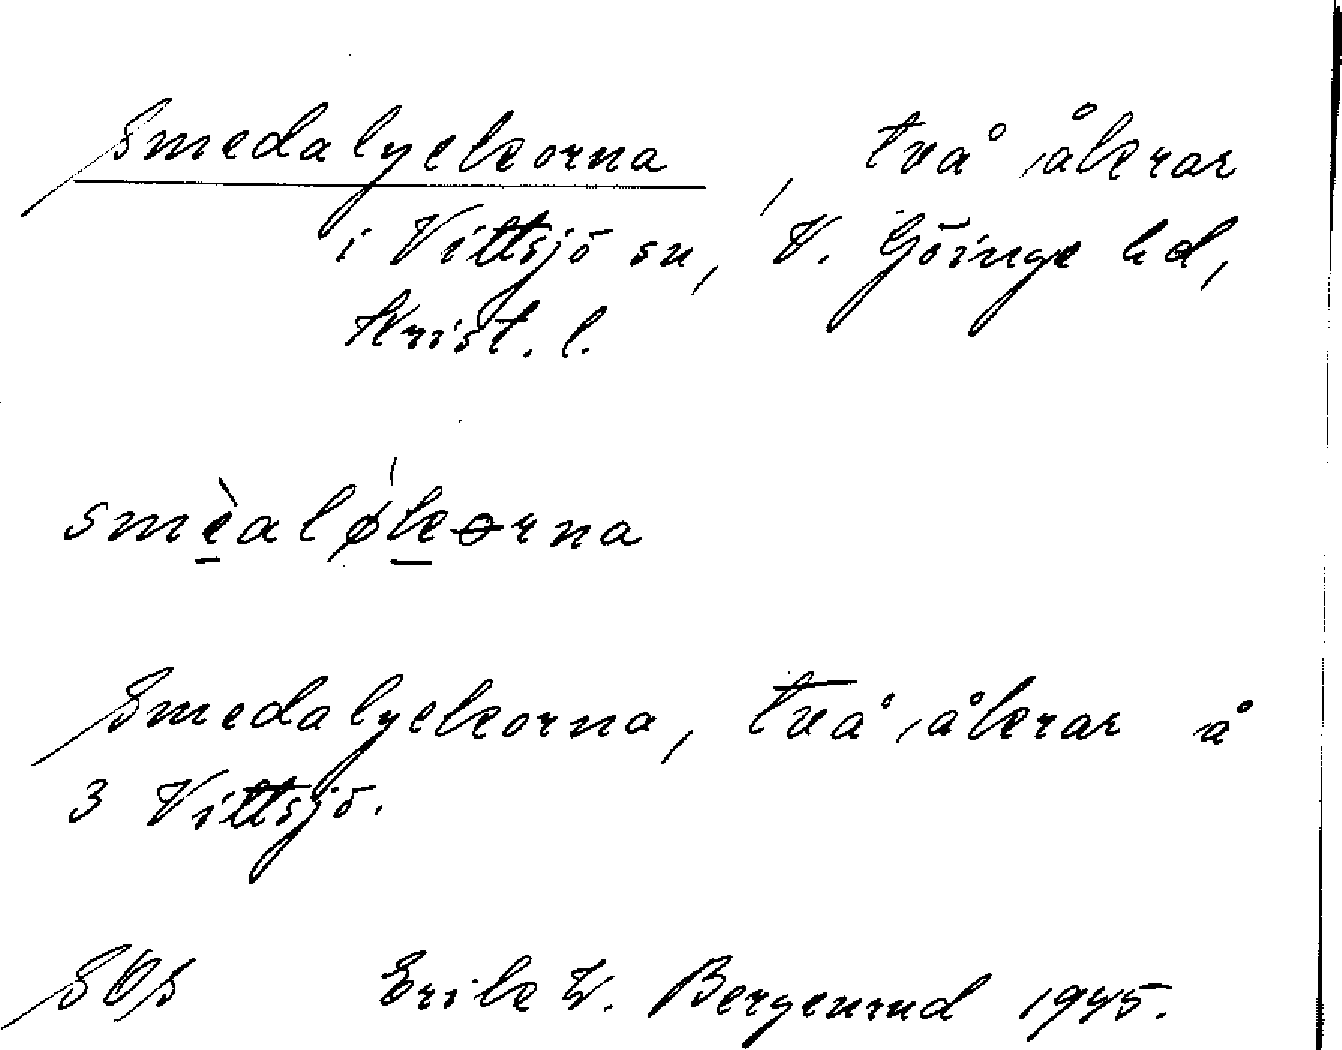 Smedalyckorna, två åkrar
i Vittsjö sn, V. Göinge hd,
Krist. l.
smèalǿkərna
Smedalyckorna, två åkrar å
3 Vittsjö.
SOS Erik W. Bergenrud 1945.